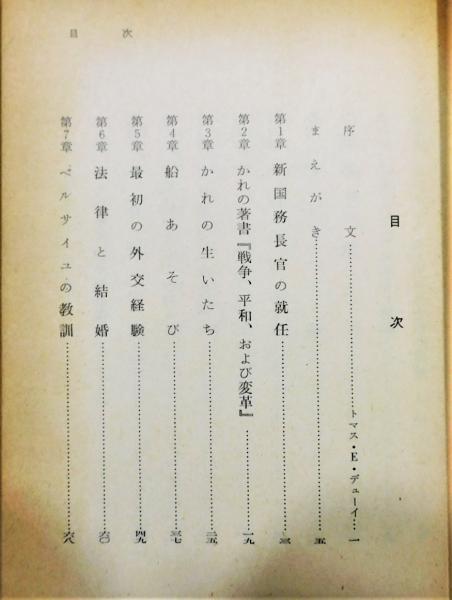 目次
目次
序文……トマス・E・デューイ…一
まえがき……五
第1章 新国務長官の就任……一三
第2章 かれの著書『戦争、平和、および変革』……一九
第3章 かれの生いたち……二五
第4章 船あそび……三七
第5章 最初の外交経験……四九
第6章 法律と結婚……六〇
第7章 ベルサイユの教訓……六八